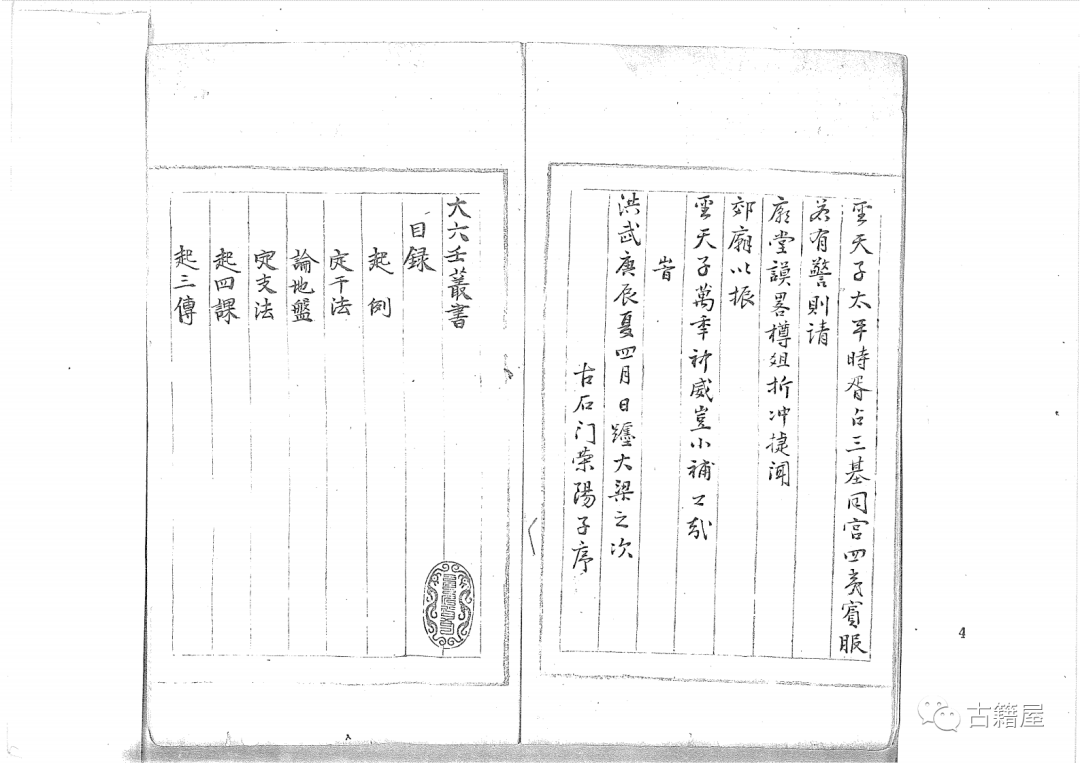 聖天子太平時胥占三基同宮四夷賓服
若有警則請
廟堂謨畧樽俎折冲捷闻
郊廟以振
聖天子萬年神威豈小補公哉
旹
洪武庚辰夏四月日躔大梁之次
古石门荣陽子序
大六壬叢書
目録
起例
定干法
論地盤
定支法
起四課
起三傳
4
古籍屋